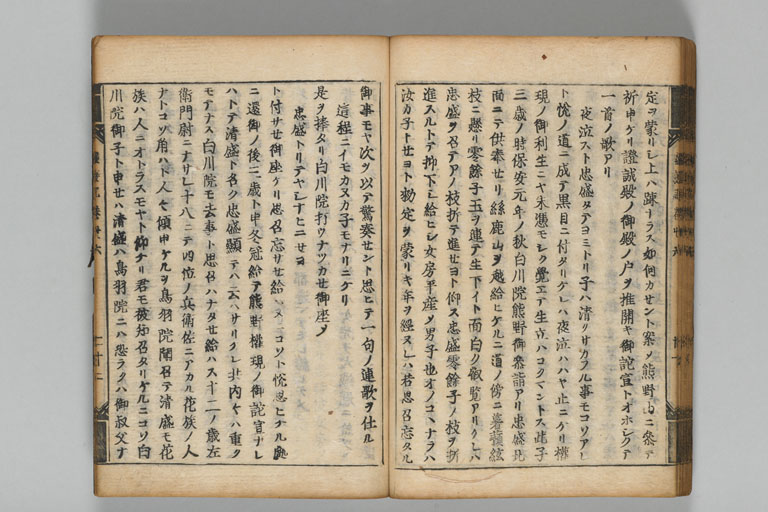 定ヲ蒙リシ上ハ疎ナラス如何カセント案シ熊野山ニ参テ
祈申ケリ證誠殿ノ御殿ノ戸ヲ推開キ御詫宣トオホシクテ
一首ノ歌アリ
夜泣スト忠盛タテヨミトリ子ハ清クサカフル事モコソアレ
ト悦ノ道ニ成テ黒目ニ付タリケレハ夜泣ハハヤ止ニケリ權
現ノ御利生ニヤ末憑モシク覺エテ生立ハコクマントス此子
三歳ノ時保安元年ノ秋白川院熊野御参詣アリ忠盛北
面ニテ供奉セリ絲鹿山ヲ越給ヒケルニ道ノ傍ニ薯蕷絃
枝ニ懸リ零餘子玉ヲ連テ生下イト面白ク叡覧アリケレハ
忠盛ヲ召テアノ枝折テ進セヨト仰ス忠盛零餘子ノ枝ヲ折
進スルトテ抑下シ給ヒシ女房平産シ男子也オノコヽナラハ
汝カ子トセヨト勅定ヲ蒙リキ年ヲ經ヌレハ若思召忘タル
御事モヤ次ヲ以テ驚奏セント思ヒテ一句ノ連歌ヲ仕ル
這程ニイモカヌカ子モナリニケリ
是ヲ捧タリ白川院打ウナツカセ御座シ
忠盛トリテヤシナヒニセヨ
ト付サセ御座ケリ思召忘サセ給ハヌニコソト悦思ヒナル處
ニ還御ノ後三歳ト申冬冠給テ熊野權現ノ御詫宣ナレ
ハトテ清盛ト名ク忠盛顯テハ云ハサリケレ北内々ハ重ク
モテナス白川院モ去事ト思召ハナタセ給ハス十二ノ歳左
衛門尉ニナサレ十八ニテ四位ノ兵衛佐ニアカル花族ノ人
ナトコソ角ハト人々傾申ケルヲ鳥羽院聞召テ清盛モ花
族ハ人ニオトラスモヤト仰ケリ君モ被知召タリケルニコソ白
川院御子ト申セハ清盛ハ鳥羽院ニハ恐ラクハ御叔父ナ